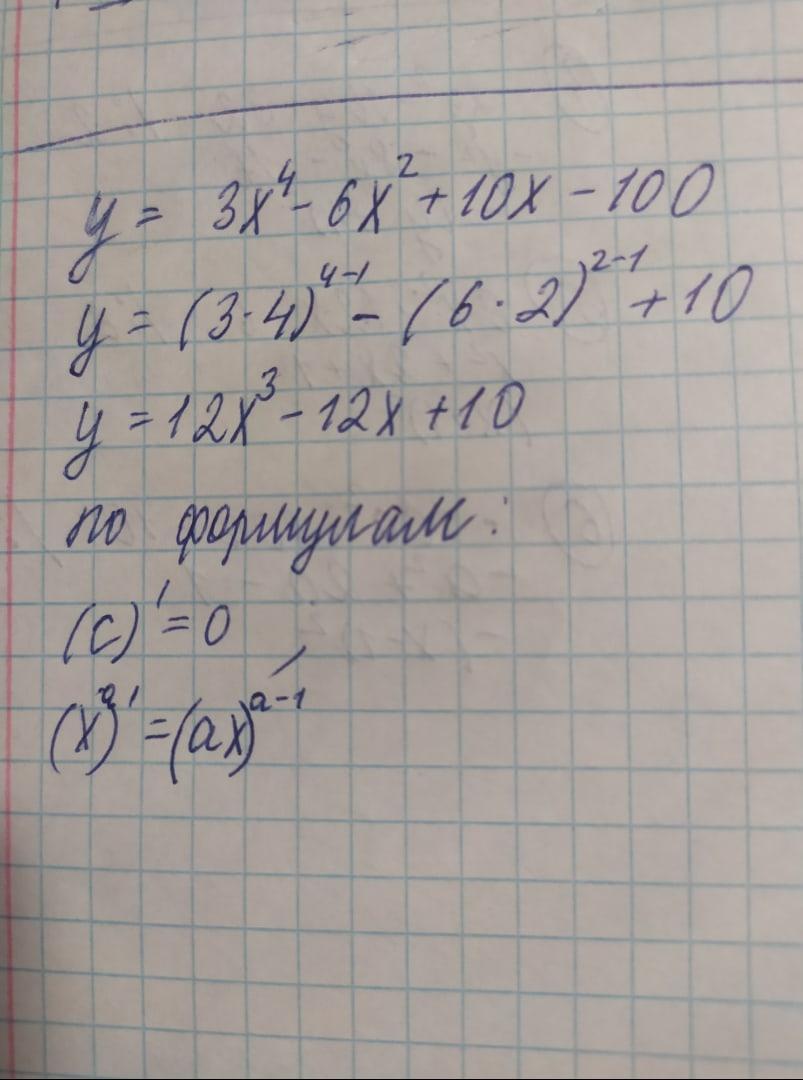 y = 3x⁴ - 6x² + 10x - 100
y = (3·4)⁴⁻¹ - (6·2)²⁻¹ + 10
y = 12x³ - 12x + 10
по формулам:
(c)' = 0
(xᵃ)' = (ax)ᵃ⁻¹